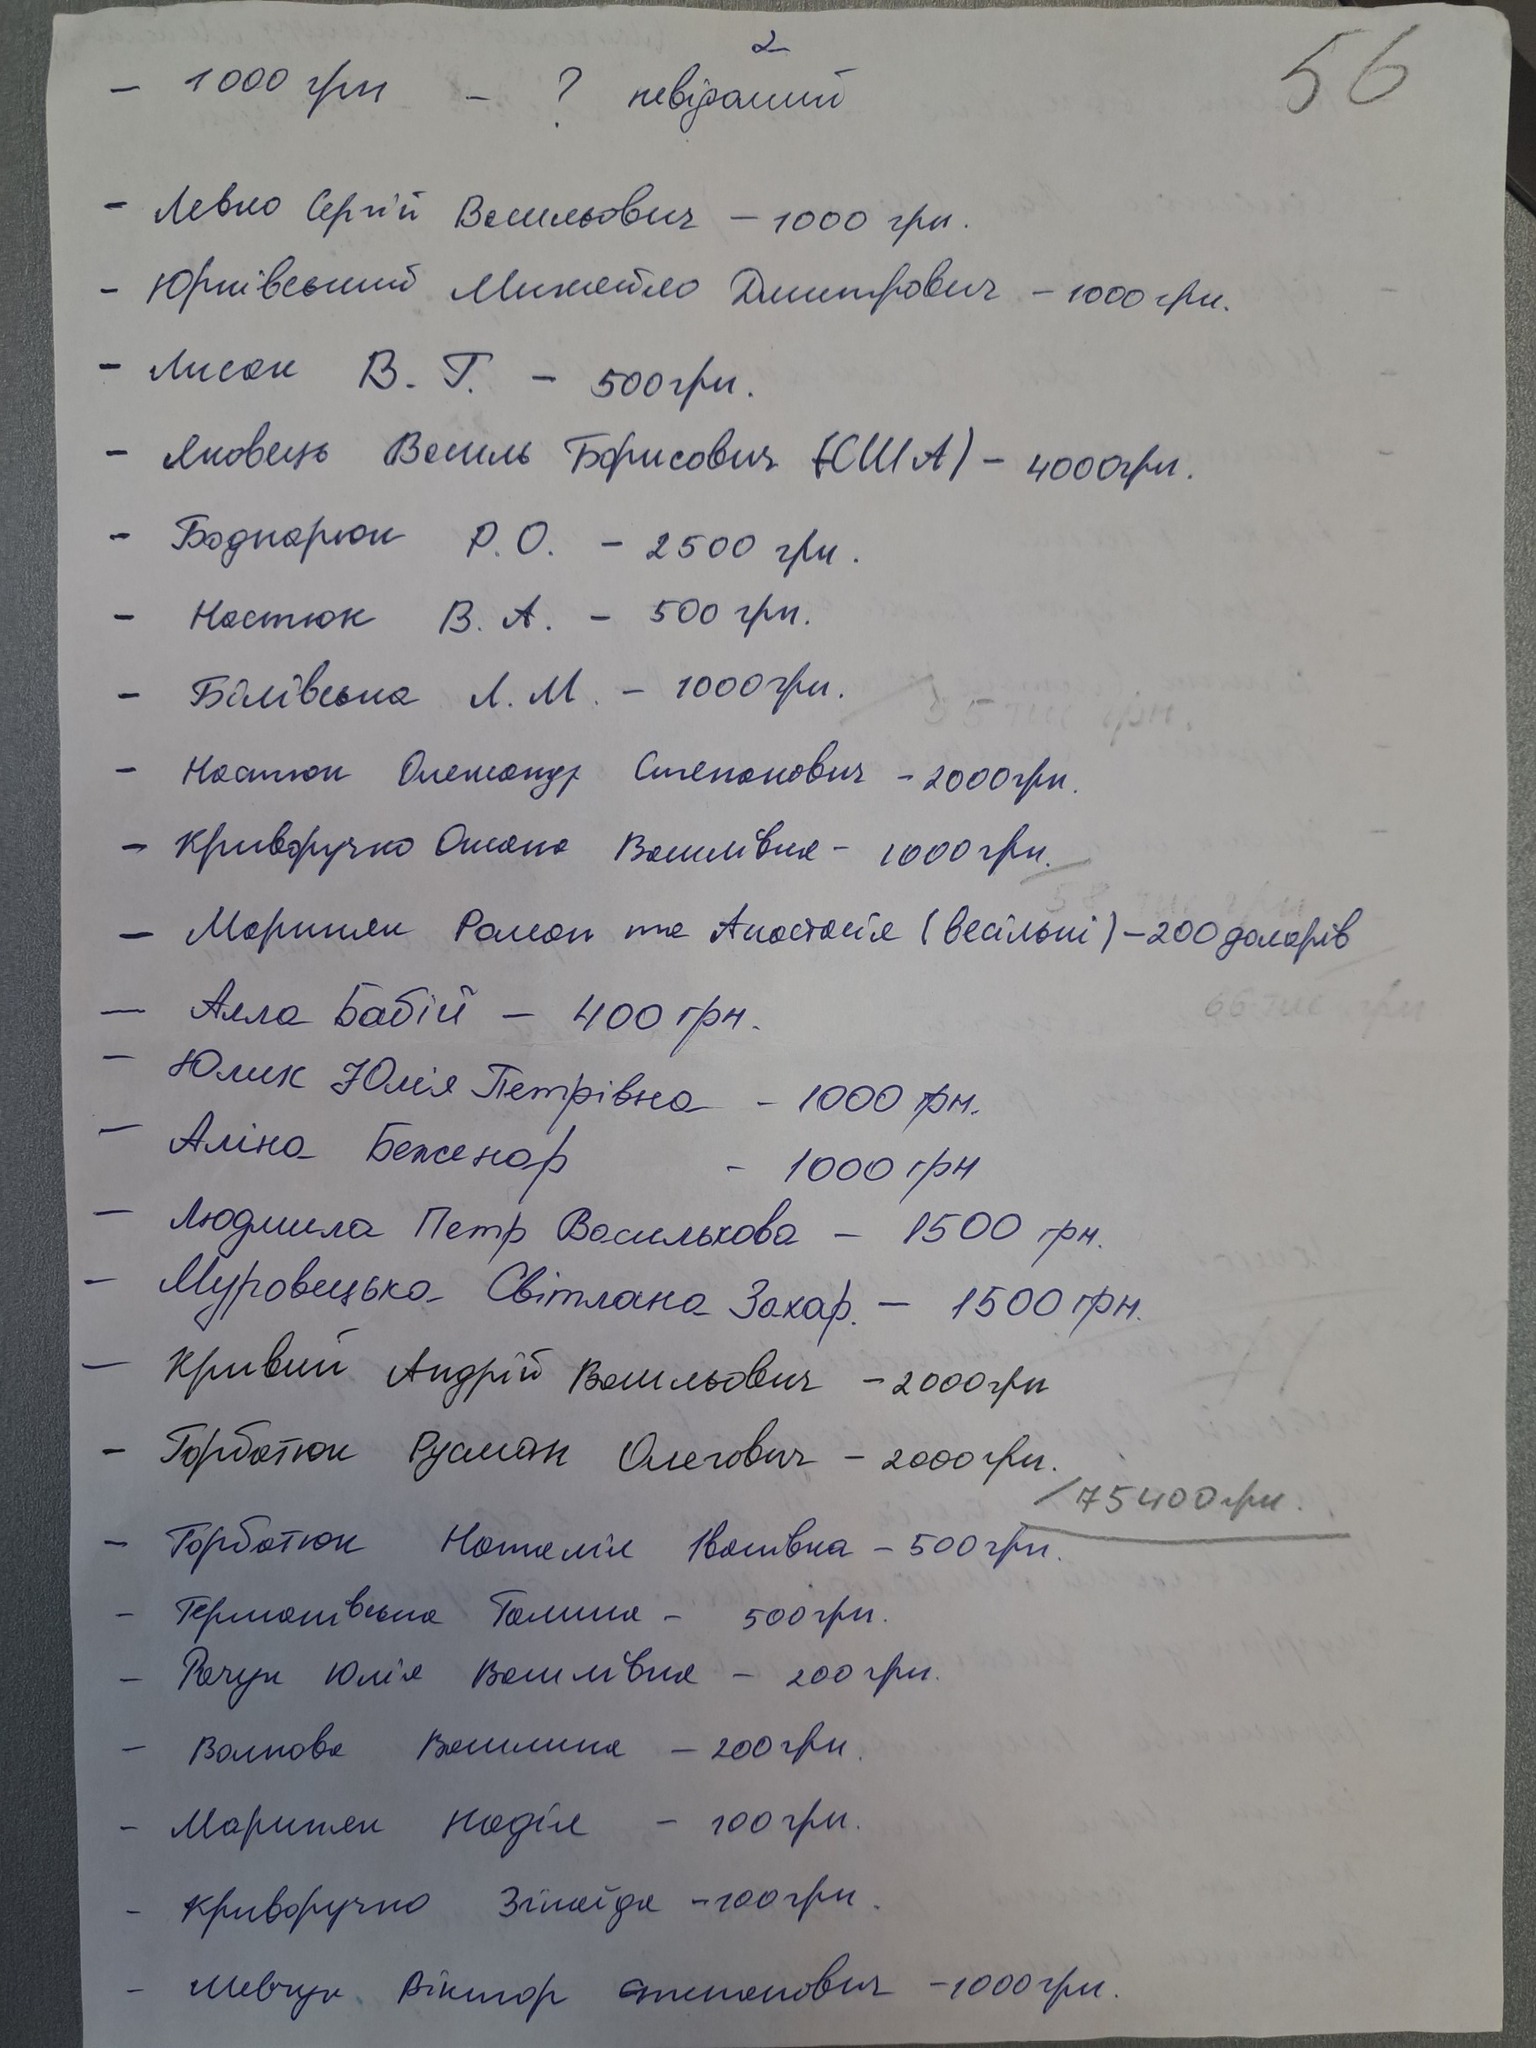 2
56
- 1000 грн - ? невідомий
- Левко Сергій Васильович - 1000 грн.
- Юрківський Михайло Дмитрович - 1000 грн.
- Лисак В. Г. - 500 грн.
- Яковець Василь Борисович (США) - 4000 грн.
- Боднарюк Р. О. - 2500 грн.
- Настюк В. А. - 500 грн.
- Білівська Л. М. - 1000 грн.
- Настюк Олександр Степанович - 2000 грн.
- Криворучко Оксана Василівна - 1000 грн.
- Мартинюк Роман та Анастасія (весільні) - 200 доларів
- Алла Бабій - 400 грн.
- Юлик Юлія Петрівна - 1000 грн.
- Аліна Беженар - 1000 грн
- Людмила Петр Василькова - 1500 грн.
- Муровецька Світлана Захар. - 1500 грн.
- Кривий Андрій Васильович - 2000 грн
- Горбатюк Руслан Олегович - 2000 грн.
75400 грн.
- Горбатюк Наталія Іванівна - 500 грн.
- Германівська Галина - 500 грн.
- Рачук Юлія Василівна - 200 грн.
- Волкова Василина - 200 грн.
- Надія - 100 грн.
- Криворучко Зінаїда - 100 грн.
- Шевчук Віктор Степанович - 1000 грн.